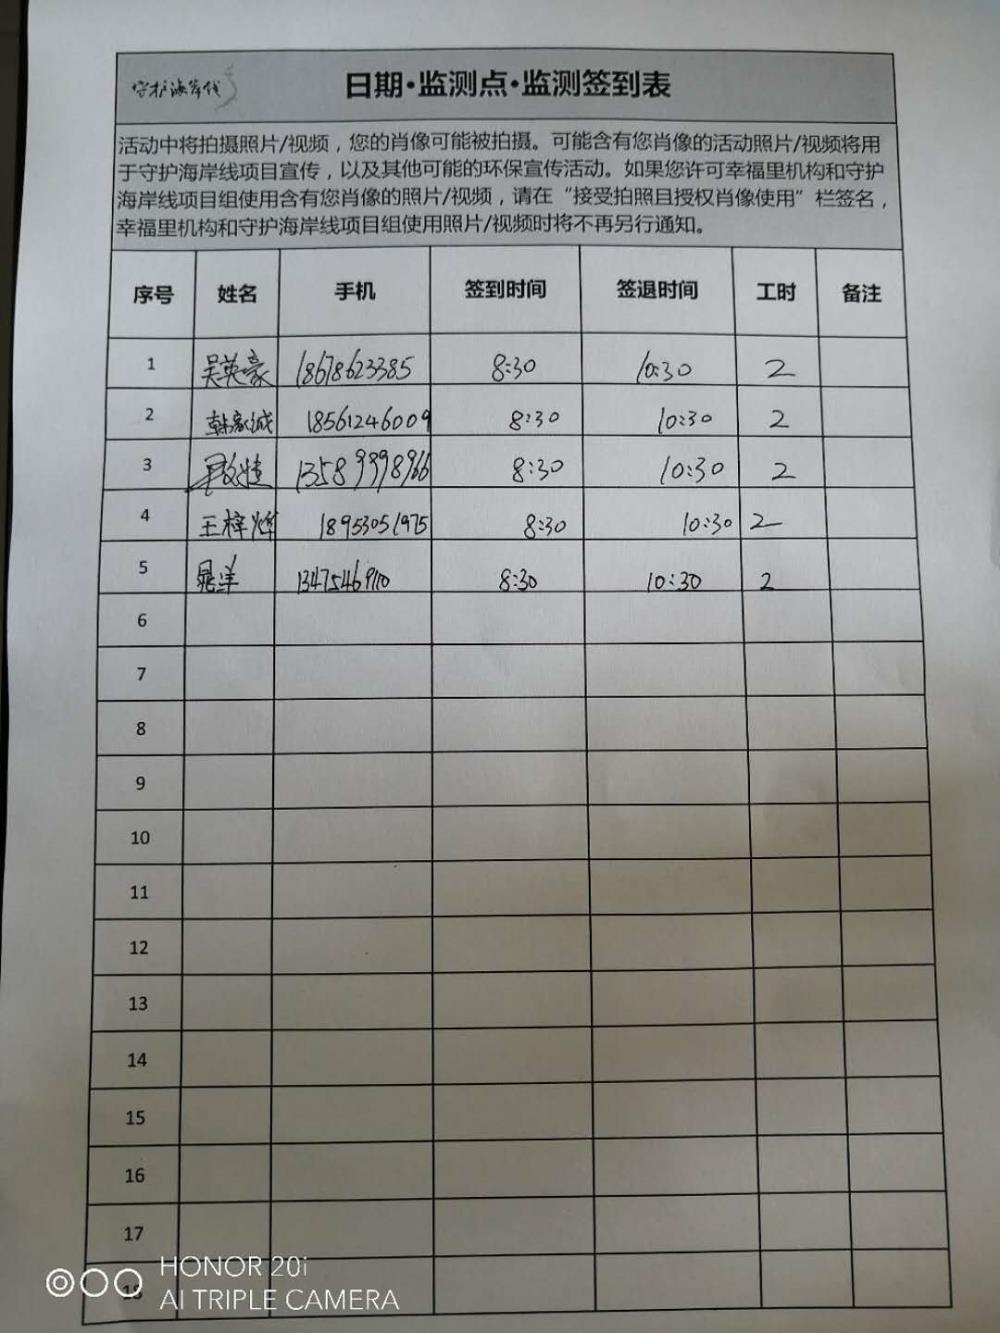 守护海岸线
日期·监测点·监测签到表
活动中将拍摄照片/视频，您的肖像可能被拍摄。可能含有您肖像的活动照片/视频将用
于守护海岸线项目宣传，以及其他可能的环保宣传活动。如果您许可幸福里机构和守护
海岸线项目组使用含有您肖像的照片/视频，请在“接受拍照且授权肖像使用”栏签名，
幸福里机构和守护海岸线项目组使用照片/视频时将不再另行通知。
序号 姓名 手机 签到时间 签退时间 工时 备注
1 吴英豪 18678623385 8:30 10:30 2
2 韩家诚 18561246009 8:30 10:30 2
3 13589998966 8:30 10:30 2
4 王梓烨 18953051975 8:30 10:30 2
5 晁洋 13475469110 8:30 10:30 2
6
7
8
9
10
11
12
13
14
15
16
17
18
HONOR 20i
AI TRIPLE CAMERA